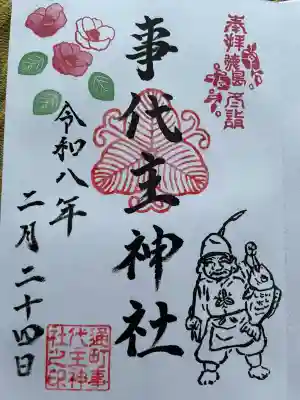 奉拝
事代主神社
令和八年
二月二十四日
通町事
代主神
社之印